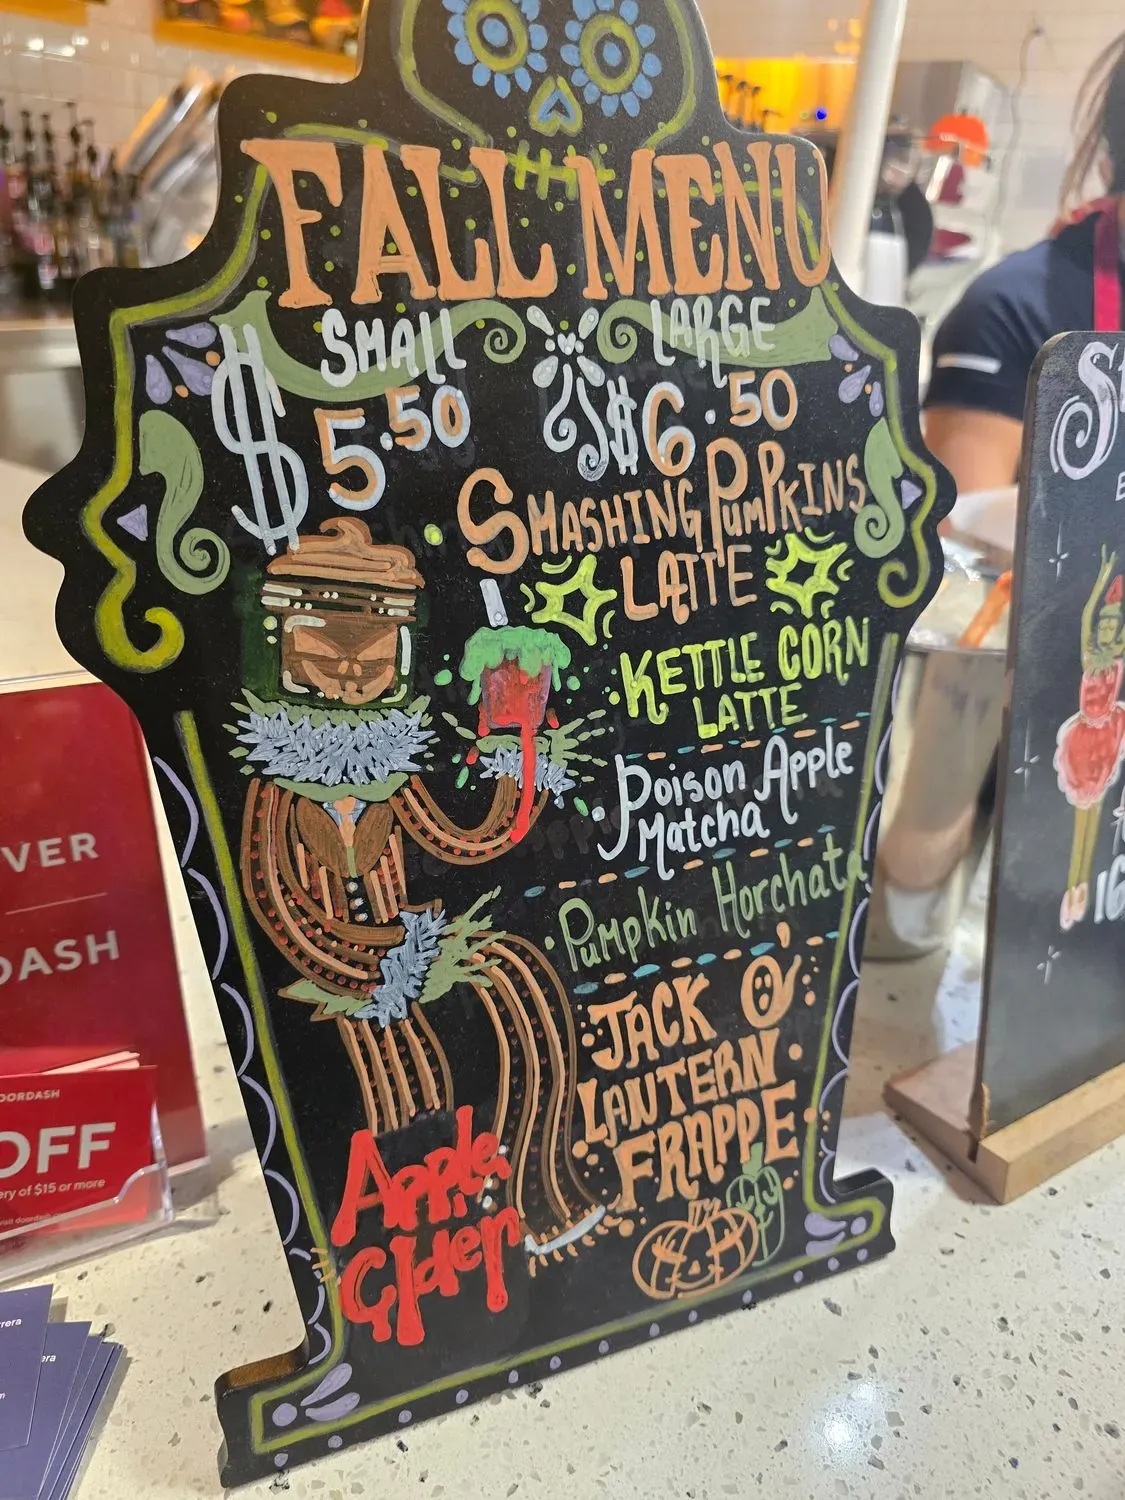 FALL MENU
SMALL
LARGE
$5.50
$6.50
SMASHING PUMPKINS
LATTE
KETTLE CORN
LATTE
Poison Apple
Matcha
Pumpkin Horchata
JACK O'
LANTERN
FRAPPE
Apple
Cider
VER
DASH
OORDASH
OFF
ery of $15 or more
rera
era
St
16